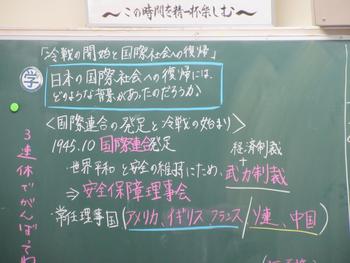 ～この時間を精一杯楽しむ～
「冷戦の開始と国際社会への復帰」
学
日本の国際社会への復帰には、
どのような背景があったのだろうか？
＜国際連合の発足と冷戦の始まり＞
1945.10 国際連合発足
・世界平和と安全の維持にため、
経済制裁
+
武力制裁
⇒安全保障理事会
・常任理事国（アメリカ、イギリス、フランス/ソ連、中国）
3連休でがんばってね